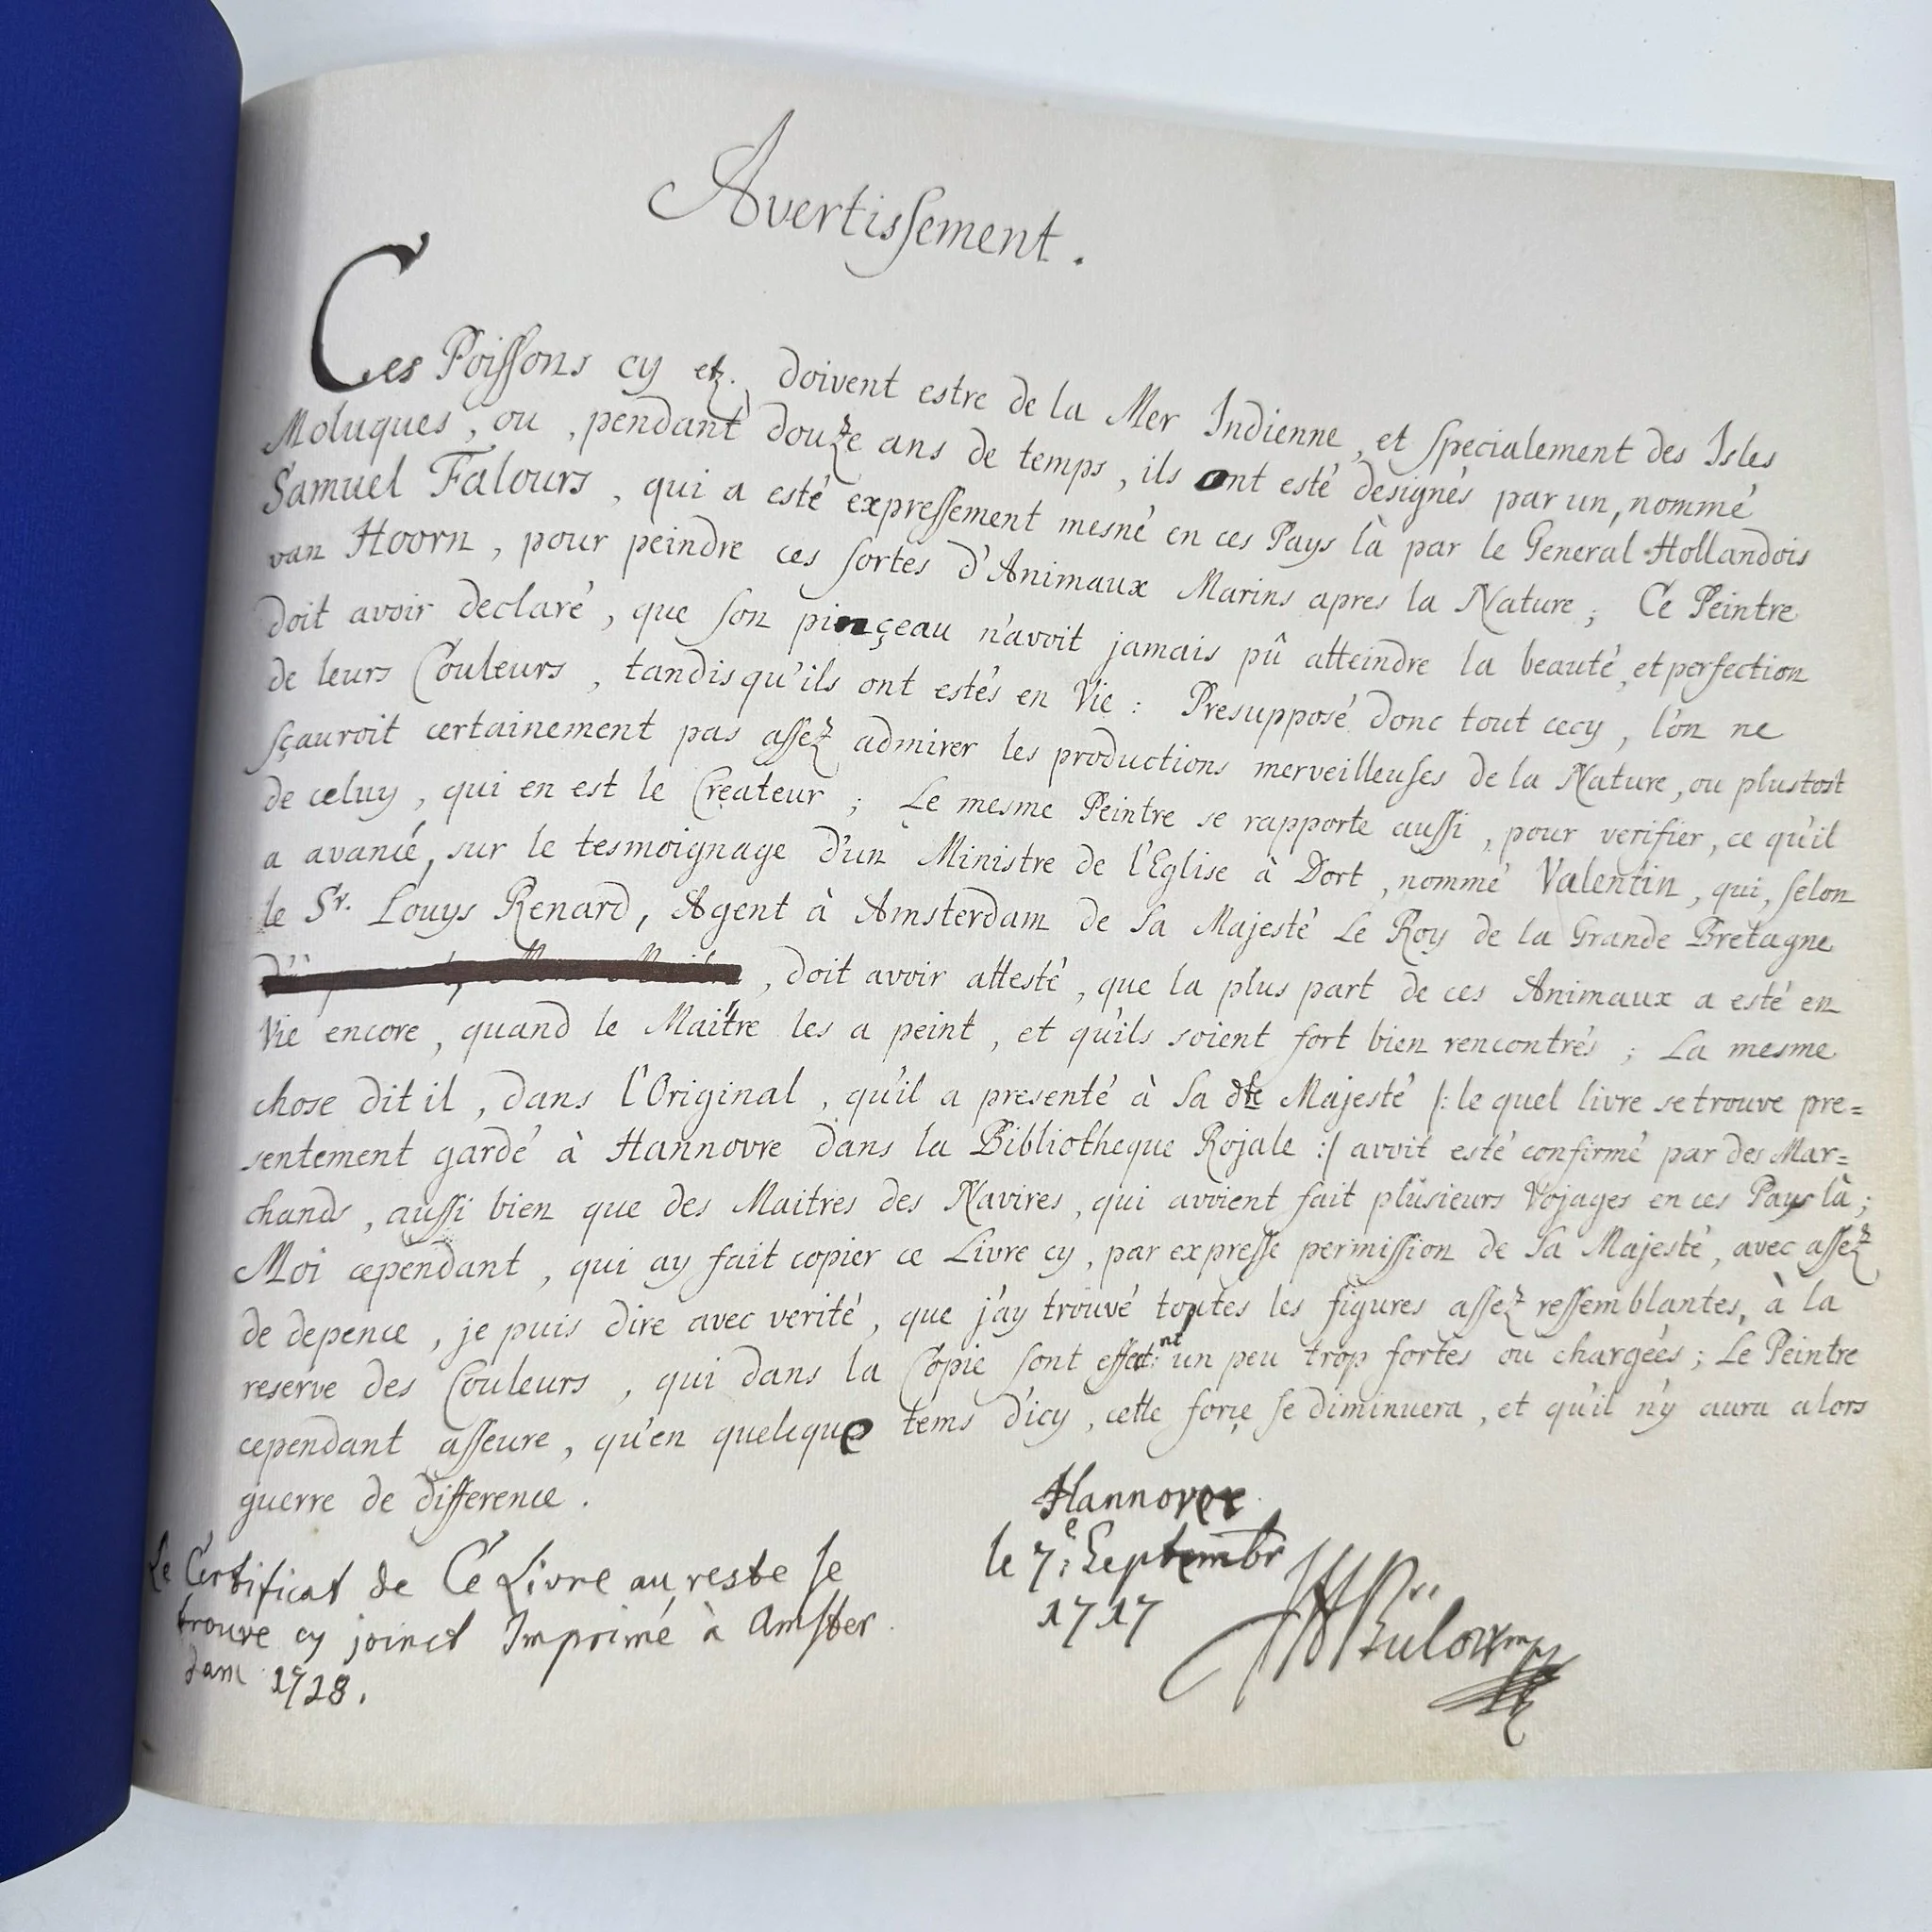 Avertissement.
Ces Poissons cy etz. doivent estre de la Mer Indienne, et specialement des Isles
Moluques, ou, pendant douze ans de temps, ils ont esté designés par un, nommé
Samuel Falours, qui a esté expressement mesné en ces Pays là par le General Hollandois
van Hoorn, pour peindre ces sortes d'Animaux Marins apres la Nature; Ce Peintre
doit avoir declaré, que son pinçeau n'avoit jamais pû atteindre la beauté, et perfection
de leurs Couleurs, tandisqu'ils ont estés en Vie: Presupposé donc tout cecy, l'on ne
sçauroit certainement pas assez admirer les productions merveilleuses de la Nature, ou plustost
de celuy, qui en est le Createur; Le mesme Peintre se rapporte aussi, pour verifier, ce qu'il
a avancé, sur le tesmoignage d'un Ministre de l'Eglise à Dort, nommé Valentin, qui, selon
le Sr. Louys Renard, Agent à Amsterdam de Sa Majesté Le Roy de la Grande Bretagne
, doit avoir attesté, que la plus part de ces Animaux a esté en
Vie encore, quand le Maitre les a peint, et qu'ils soient fort bien rencontrés; La mesme
chose dit il, dans l'Original, qu'il a presenté à Sa dte Majesté /: le quel livre se trouve pre=
sentement gardé à Hannovre dans la Bibliotheque Rojale :/ avoit esté confirmé par des Mar=
chands, aussi bien que des Maitres des Navires, qui avoient fait plusieurs Vojages en ces Pays là;
Moi cependant, qui ay fait copier ce Livre cy, par expresse permission de Sa Majesté, avec assez
de depence, je puis dire avec verité, que j'ay trouvé toutes les figures assez ressemblantes, à la
reserve des Couleurs, qui dans la Copie sont effect:nt un peu trop fortes ou chargées; Le Peintre
cependant asseure, qu'en quelque tems d'icy, cette force se diminuera, et qu'il n'y aura alors
guerre de difference.
Hannover
le 7e: Septembr
1717
Bülow
Le Certificat de Cé Livre au reste se
trouve cy joinct Imprimé à Amster
dam 1718.